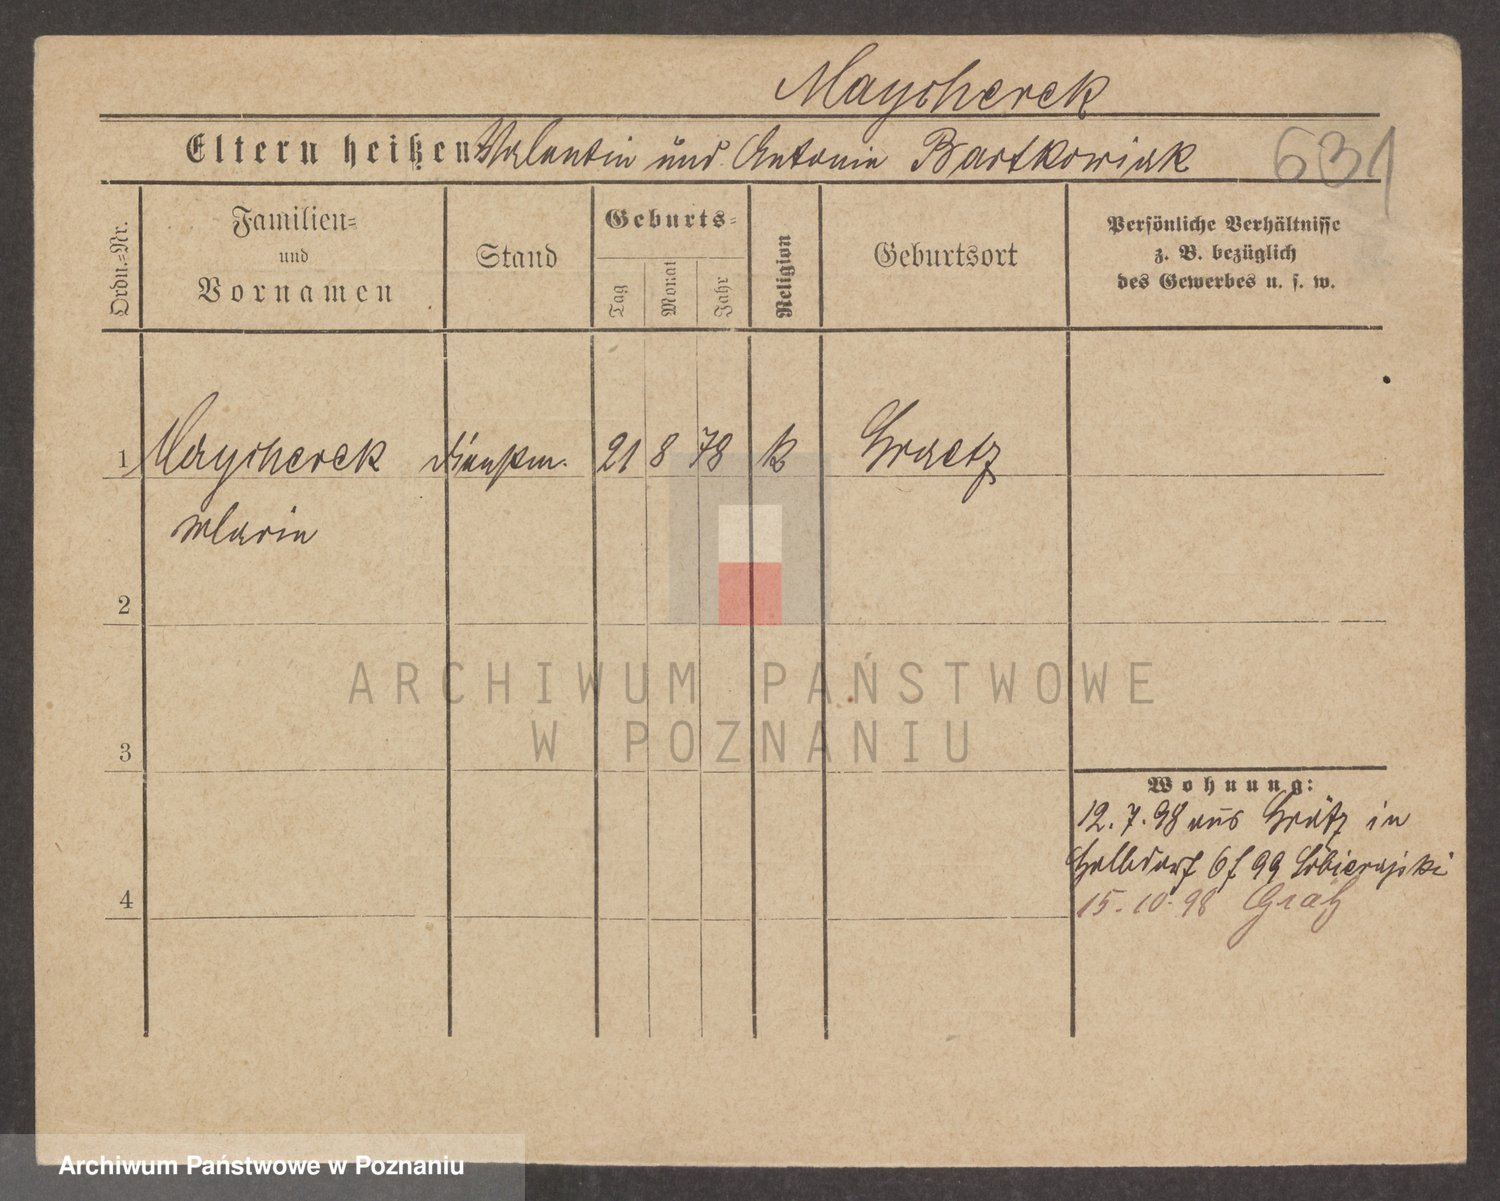 Maycherek
Eltern heißen Valentin und Antonie Bartkowiak
631
Ordn.=Nr.
Familien=
und
Vornamen
Stand
Geburts=
Tag
Monat
Jahr
Religion
Geburtsort
Persönliche Verhältnisse
z. B. bezüglich
des Gewerbes u. s. w.
1 Maycherek Dienstm. 21 8 78 k Graetz
Marie
2
3
4
Wohnung:
12. 7. 98 aus Grätz in
Halbdorf 6 f 99
15. 10. 98 Grätz
ARCHIWUM PAŃSTWOWE
W POZNANIU
Archiwum Państwowe w Poznaniu